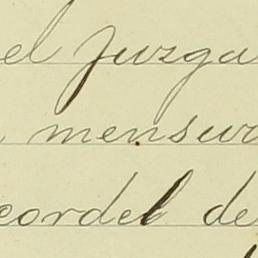 el Juzga
mensur
cordel de